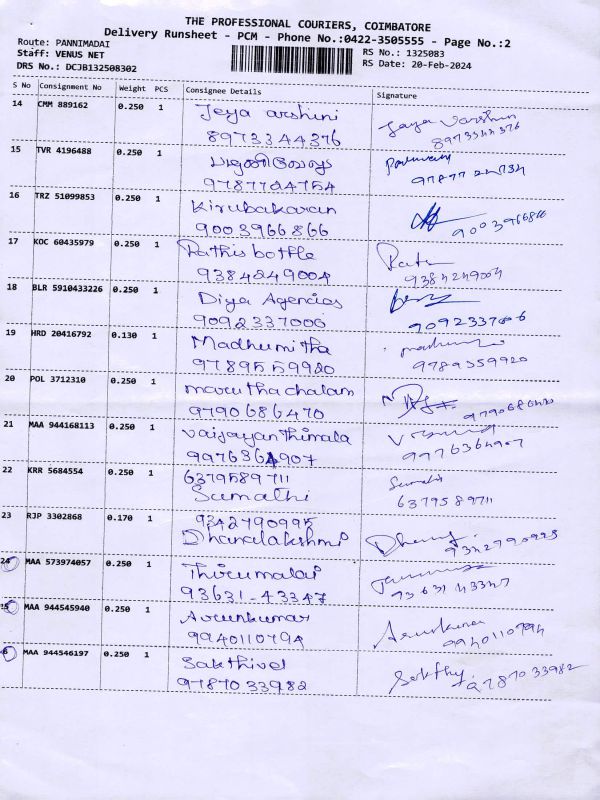 THE PROFESSIONAL COURIERS, COIMBATORE
Delivery Runsheet - PCM - Phone No.:0422-3505555 - Page No.:2
Route: PANNIMADAI
Staff: VENUS NET
DRS No.: DCJB132508302
RS No.: 1325083
RS Date: 20-Feb-2024
S No Consignment No Weight PCS Consignee Details Signature
14 CMM 889162 0.250 1 Jeya arshini Jaya Varshini
8973344376 8973344376
15 TVR 4196488 0.250 1
9787704754
16 TRZ 51099853 0.250 1 Kirubakaran
9003966866 9003966866
17 KOC 60435979 0.250 1 Rathis bottle
9384249004 9384249004
18 BLR 5910433226 0.250 1 Diya Agencies
9092337006 9092337006
19 HRD 20416792 0.130 1 Madhumitha
9789559920 9789559920
20 POL 3712310 0.250 1 marutha chalam
9790686470
21 MAA 944168113 0.250 1 vaijayanthimala
9976364907 9976364907
22 KRR 5684554 0.250 1 6379589711 Sumathi
Sumathi 6379589711
23 RJP 3302868 0.170 1 9342790995
Dhanalakshmi
24 MAA 573974057 0.250 1 Thirumalai
93631-43347 93631 43347
25 MAA 944545940 0.250 1 Arunkumar Arunkumar
9940110794 9940110794
MAA 944546197 0.250 1 Sakthivel Sakthy
9787033982 9787033982